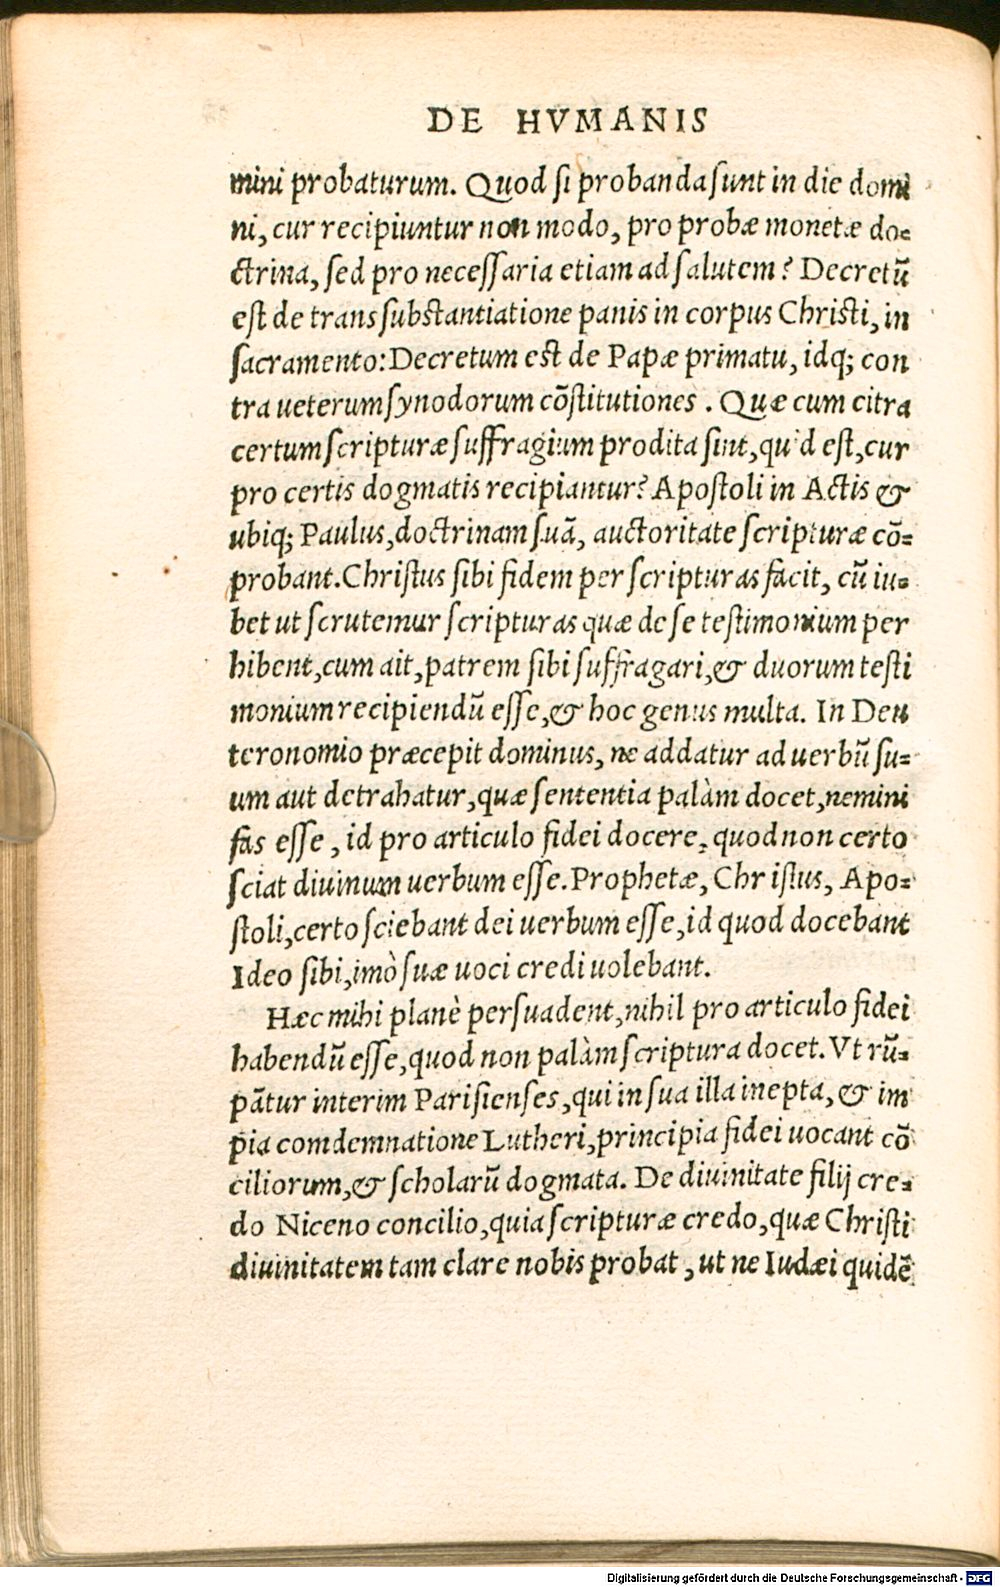 DE HVMANIS
mini probaturum. Quod si probanda sunt in die domi
ni, cur recipiuntur non modo, pro probæ monetæ do-
ctrina, sed pro necessaria etiam ad salutem? Decretū
est de transsubstantiatione panis in corpus Christi, in
sacramento: Decretum est de Papæ primatu, idq; con
tra ueterum synodorum cōstitutiones. Quæ cum citra
certum scripturæ suffragium prodita sint, quid est, cur
pro certis dogmatis recipiantur? Apostoli in Actis &
ubiq; Paulus, doctrinam suā, auctoritate scripturæ cō-
probant. Christus sibi fidem per scripturas facit, cū iu-
bet ut scrutemur scripturas quæ de se testimonium per
hibent, cum ait, patrem sibi suffragari, & duorum testi
monium recipiendū esse, & hoc genus multa. In Deu
teronomio præcepit dominus, ne addatur ad uerbū su-
um aut detrahatur, quæ sententia palàm docet, nemini
fas esse, id pro articulo fidei docere, quod non certo
sciat diuinum uerbum esse. Prophetæ, Christus, Apo-
stoli, certo sciebant dei uerbum esse, id quod docebant
Ideo sibi, imò suæ uoci credi uolebant.
Hæc mihi planè persuadent, nihil pro articulo fidei
habendū esse, quod non palàm scriptura docet. Vt rū-
pātur interim Parisienses, qui in sua illa inepta, & im
pia comdemnatione Lutheri, principia fidei uocant cō
ciliorum, & scholarū dogmata. De diuinitate filij cre-
do Niceno concilio, quia scripturæ credo, quæ Christi
diuinitatem tam clare nobis probat, ut ne Iudæi quidē
Digitalisierung gefördert durch die Deutsche Forschungsgemeinschaft - DFG